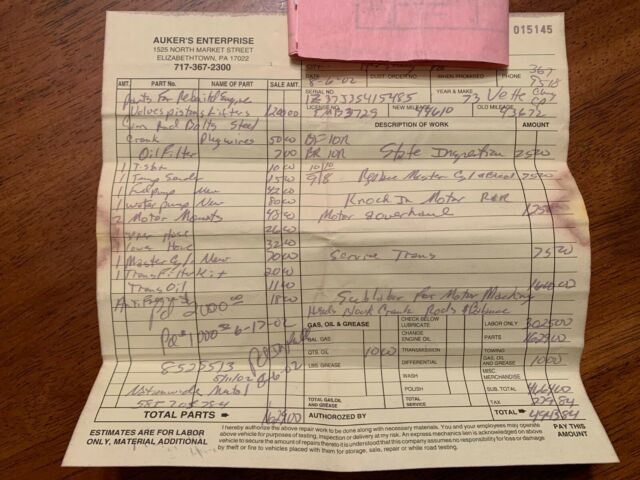 AUKER'S ENTERPRISE
1525 NORTH MARKET STREET
ELIZABETHTOWN, PA 17022
717-367-2300
015145
8-6-02
CUST. ORDER NO.
WHEN PROMISED
PHONE
367
9518
SERIAL NO.
1Z37S3S415485
YEAR & MAKE
73 Vette
LICENSE NO.
NEW MILEAGE
49610
OLD MILEAGE
43672
AMT.
PART No.
NAME OF PART
SALE AMT.
DESCRIPTION OF WORK
AMOUNT
Parts For Rebuild Engine
Valves pistons lifters 1200 00
Rod Bolts Steel
Crank Plug wires 50 00
Oil Filter 7 00
BR 10R
State Inspection 25 00
10 00
1 Temp 15 00
Master Cyl 75 00
1 Fuel pump New 42 00
1 water pump New 80 00
Knock In Motor R&R
2 Motor Mounts
Motor overhaul
Hose 26 00
Hose 32 00
1 Master Cyl New 70 00
Service Trans 75 00
1 Trans Filter Kit 20 00
Trans Oil 11 00
Anti Freeze 18 00
Sublabor For Motor Machine
Heads Block Crank Rods & Balance
Pd 2000 00
Pd 1000 00 6-17-02
8-6-02
8525513
5/11/02
Nationwide
GAS, OIL & GREASE
GAL. GAS
QTS. OIL 10 00
LBS. GREASE
TOTAL GAS, OIL AND GREASE
CHECK BELOW
LUBRICATE
CHANGE ENGINE OIL
TRANSMISSION
DIFFERENTIAL
WASH
POLISH
TOTAL SERVICE
LABOR ONLY 3025 00
PARTS 1629 00
TOWING
GAS, OIL AND GREASE 10 00
MISC. MERCHANDISE
SUB. TOTAL 4664 00
TAX 279 84
TOTAL PARTS 1629 00
AUTHORIZED BY
TOTAL 4943 84
ESTIMATES ARE FOR LABOR ONLY, MATERIAL ADDITIONAL
I hereby authorize the above repair work to be done along with necessary materials. You and your employees may operate
above vehicle for purposes of testing, inspection or delivery at my risk. An express mechanics lien is acknowledged on above
vehicle to secure the amount of repairs thereto. It is understood that this company assumes no responsibility for loss or damage
by theft or fire to vehicles placed with them for storage, sale, repair or while road testing.
PAY THIS AMOUNT